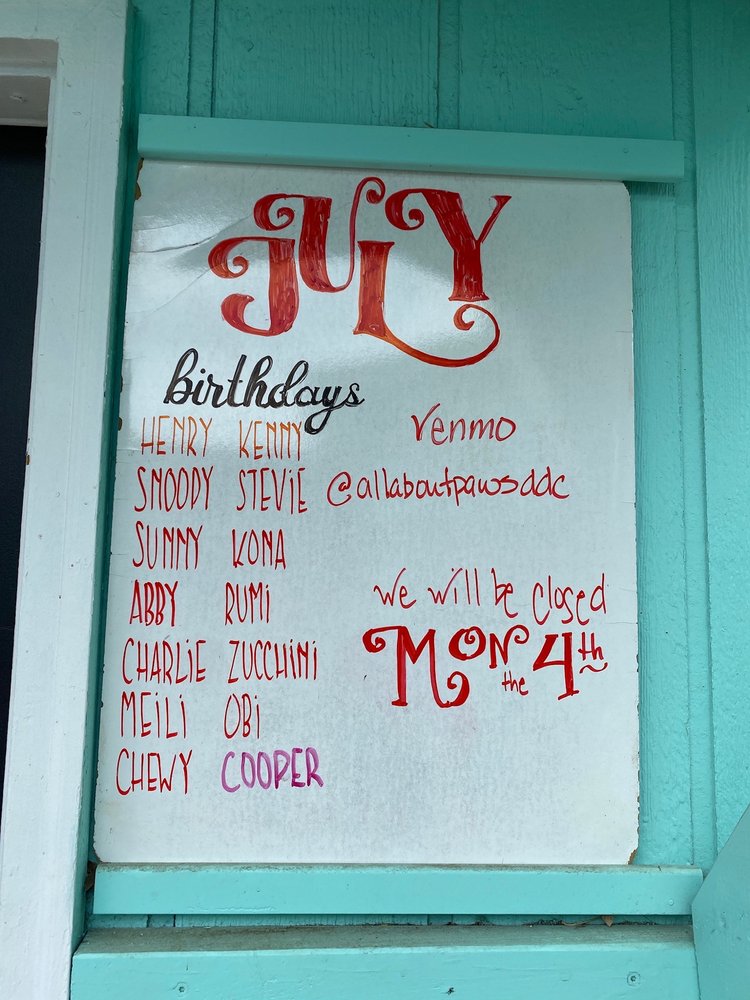 JULY
birthdays
HENRY KENNY
SNOOPY STEVIE
SUNNY KONA
ABBY RUMI
CHARLIE ZUCCHINI
MEILI OBI
CHEWY COOPER
venmo
@allaboutpawsddc
We will be closed
MON the 4th